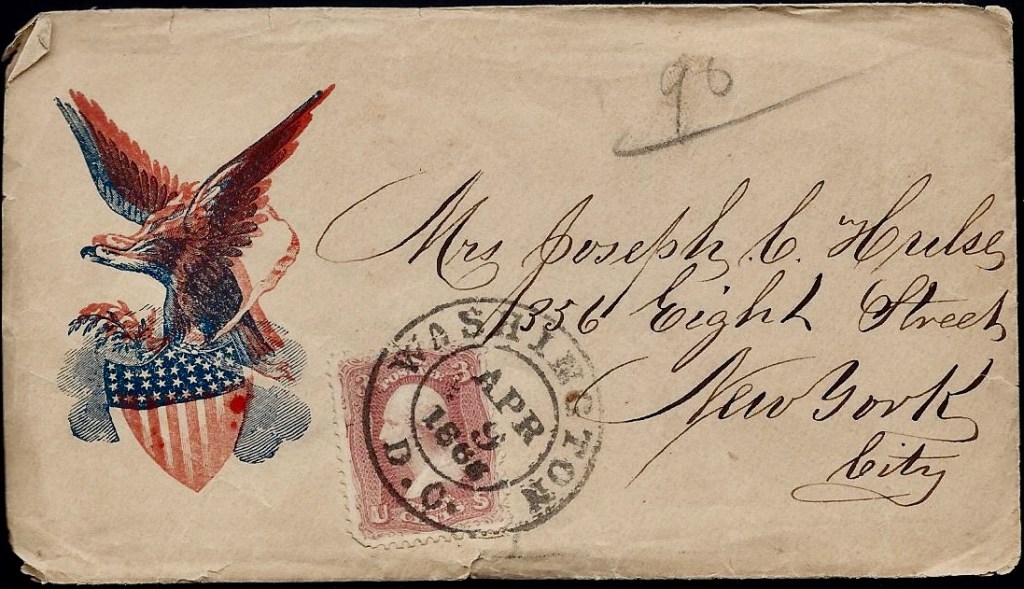 96
Mrs Joseph C. Hulse
356 Eight Street
New York
City
WASHINGTON
APR
1863
D.C.
U S